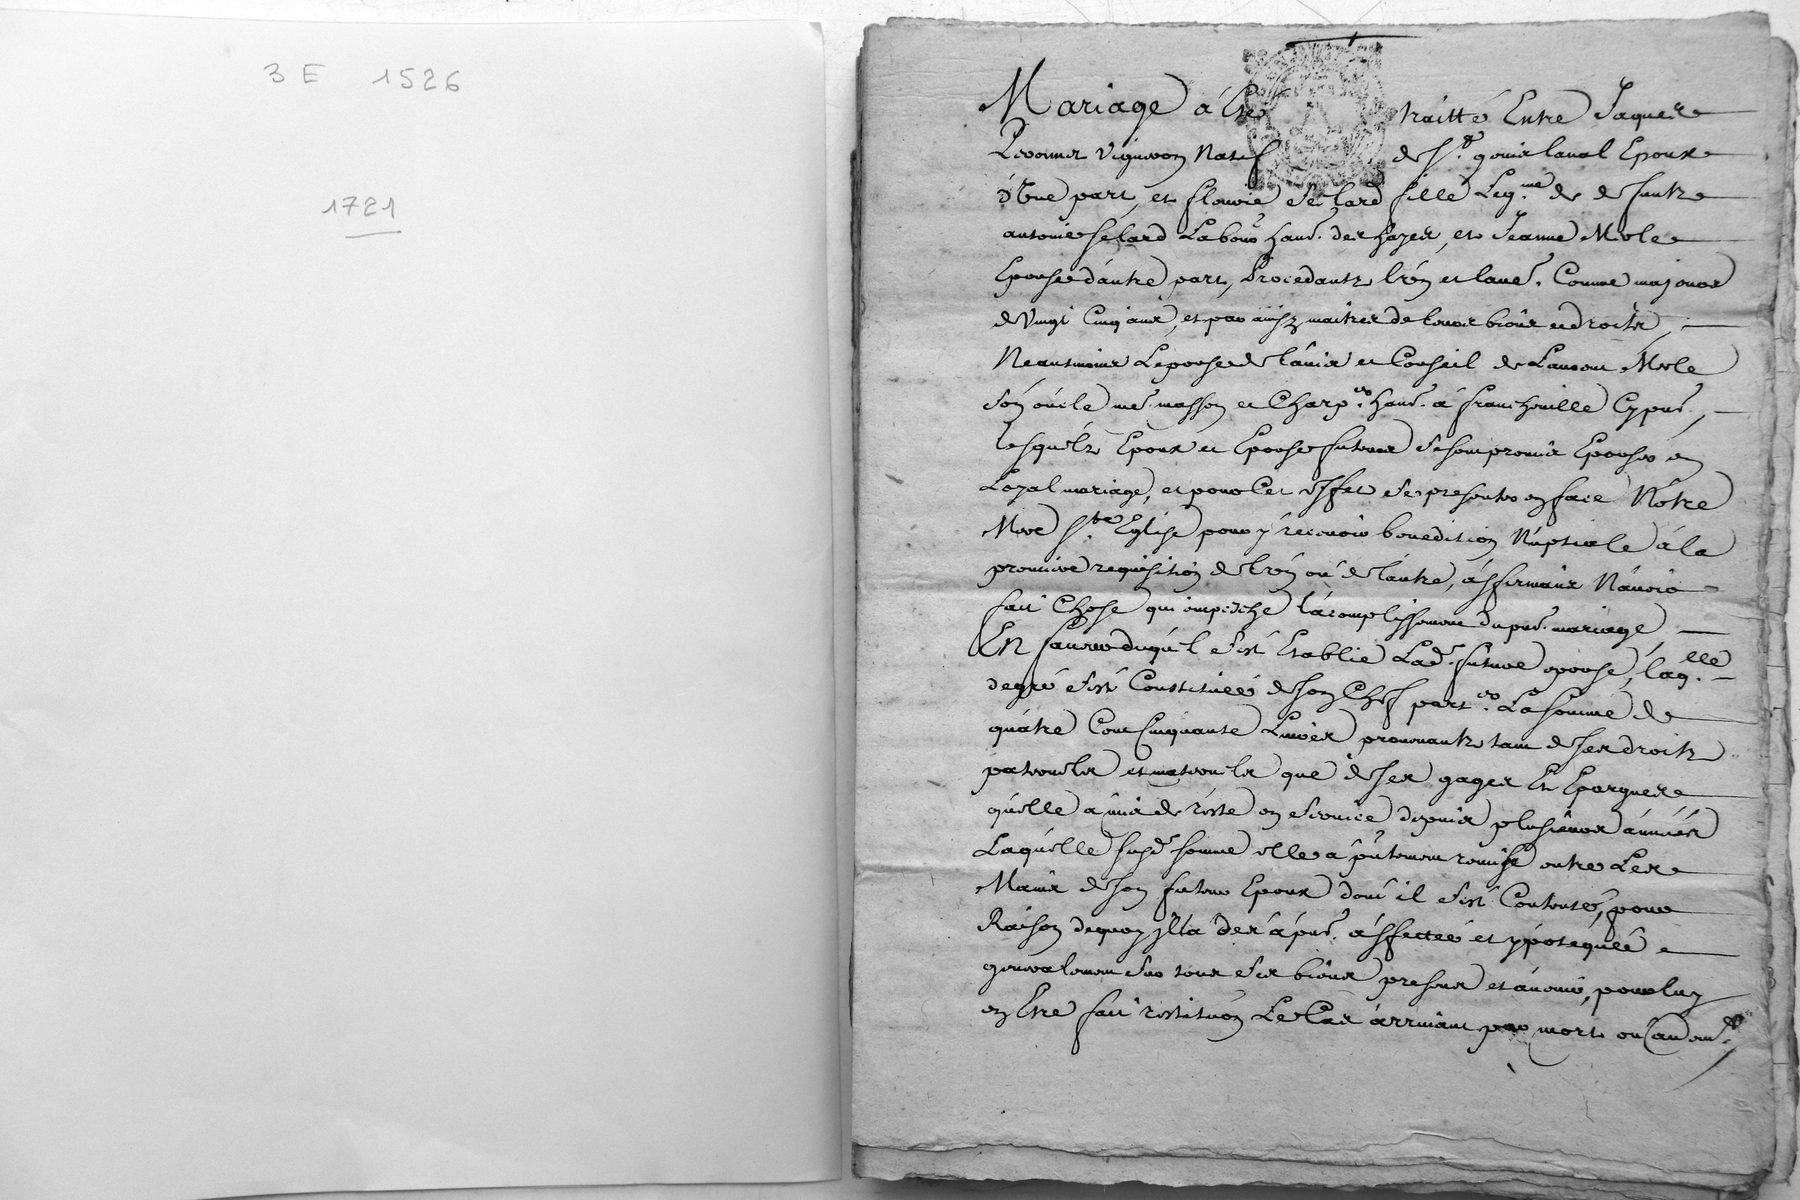 3 E 1526
1721
Mariage à Etre traitté Entre Jaques
vigneron Natif de St. genis laval Epoux
d'Une part, et flourie Selard fille Leg.me de deffunts
antoine Selard Labour. hant. des hayes, et Jeanne Mole
Epouse d'autre part, Procedants l'vn et laut. Comme majeurs
de Vingt Cinq ans, et par ainsy maitres de leurs biens et droits,
Neantmoins Lepouse de l'auis et Conseil de Laurent Mole
son oncle me. masson et Charp.er hant. à francheuille Cy pnt.,
lesquels Epoux et Epouse futurs se sont promis Epouser en
Loyal mariage, et pour Cet effet se presenter en face Nôtre
Mere Ste. Eglise pour y receuoir benediction Nuptiale à la
premiere requisition de l'vn ou de l'autre, affirmants N'auoir
fait Chose qui empesche l'acomplissement du pnt. mariage,
En faueur duquel s'est Etablie Lad. future epouse, laq.lle
de gré s'est Constituée de son Chef part.er La somme de
quatre Cent Cinquante Liures prouenants tant de ses droits
paternels et maternels que de ses gages Et Epargnes
qu'elle a mis de reste en seruice depuis plusieurs années
Laquelle susd. somme elle a pntement remise entre Les
Mains de son futur Epoux dont il s'est Contenté, pour
Raison dequoy il la des à pnt. affectée et ypotequée
generalement sur tous ses biens presens et auenir, pour luy
en Etre fait restitution Le Cas arriuant par mort ou